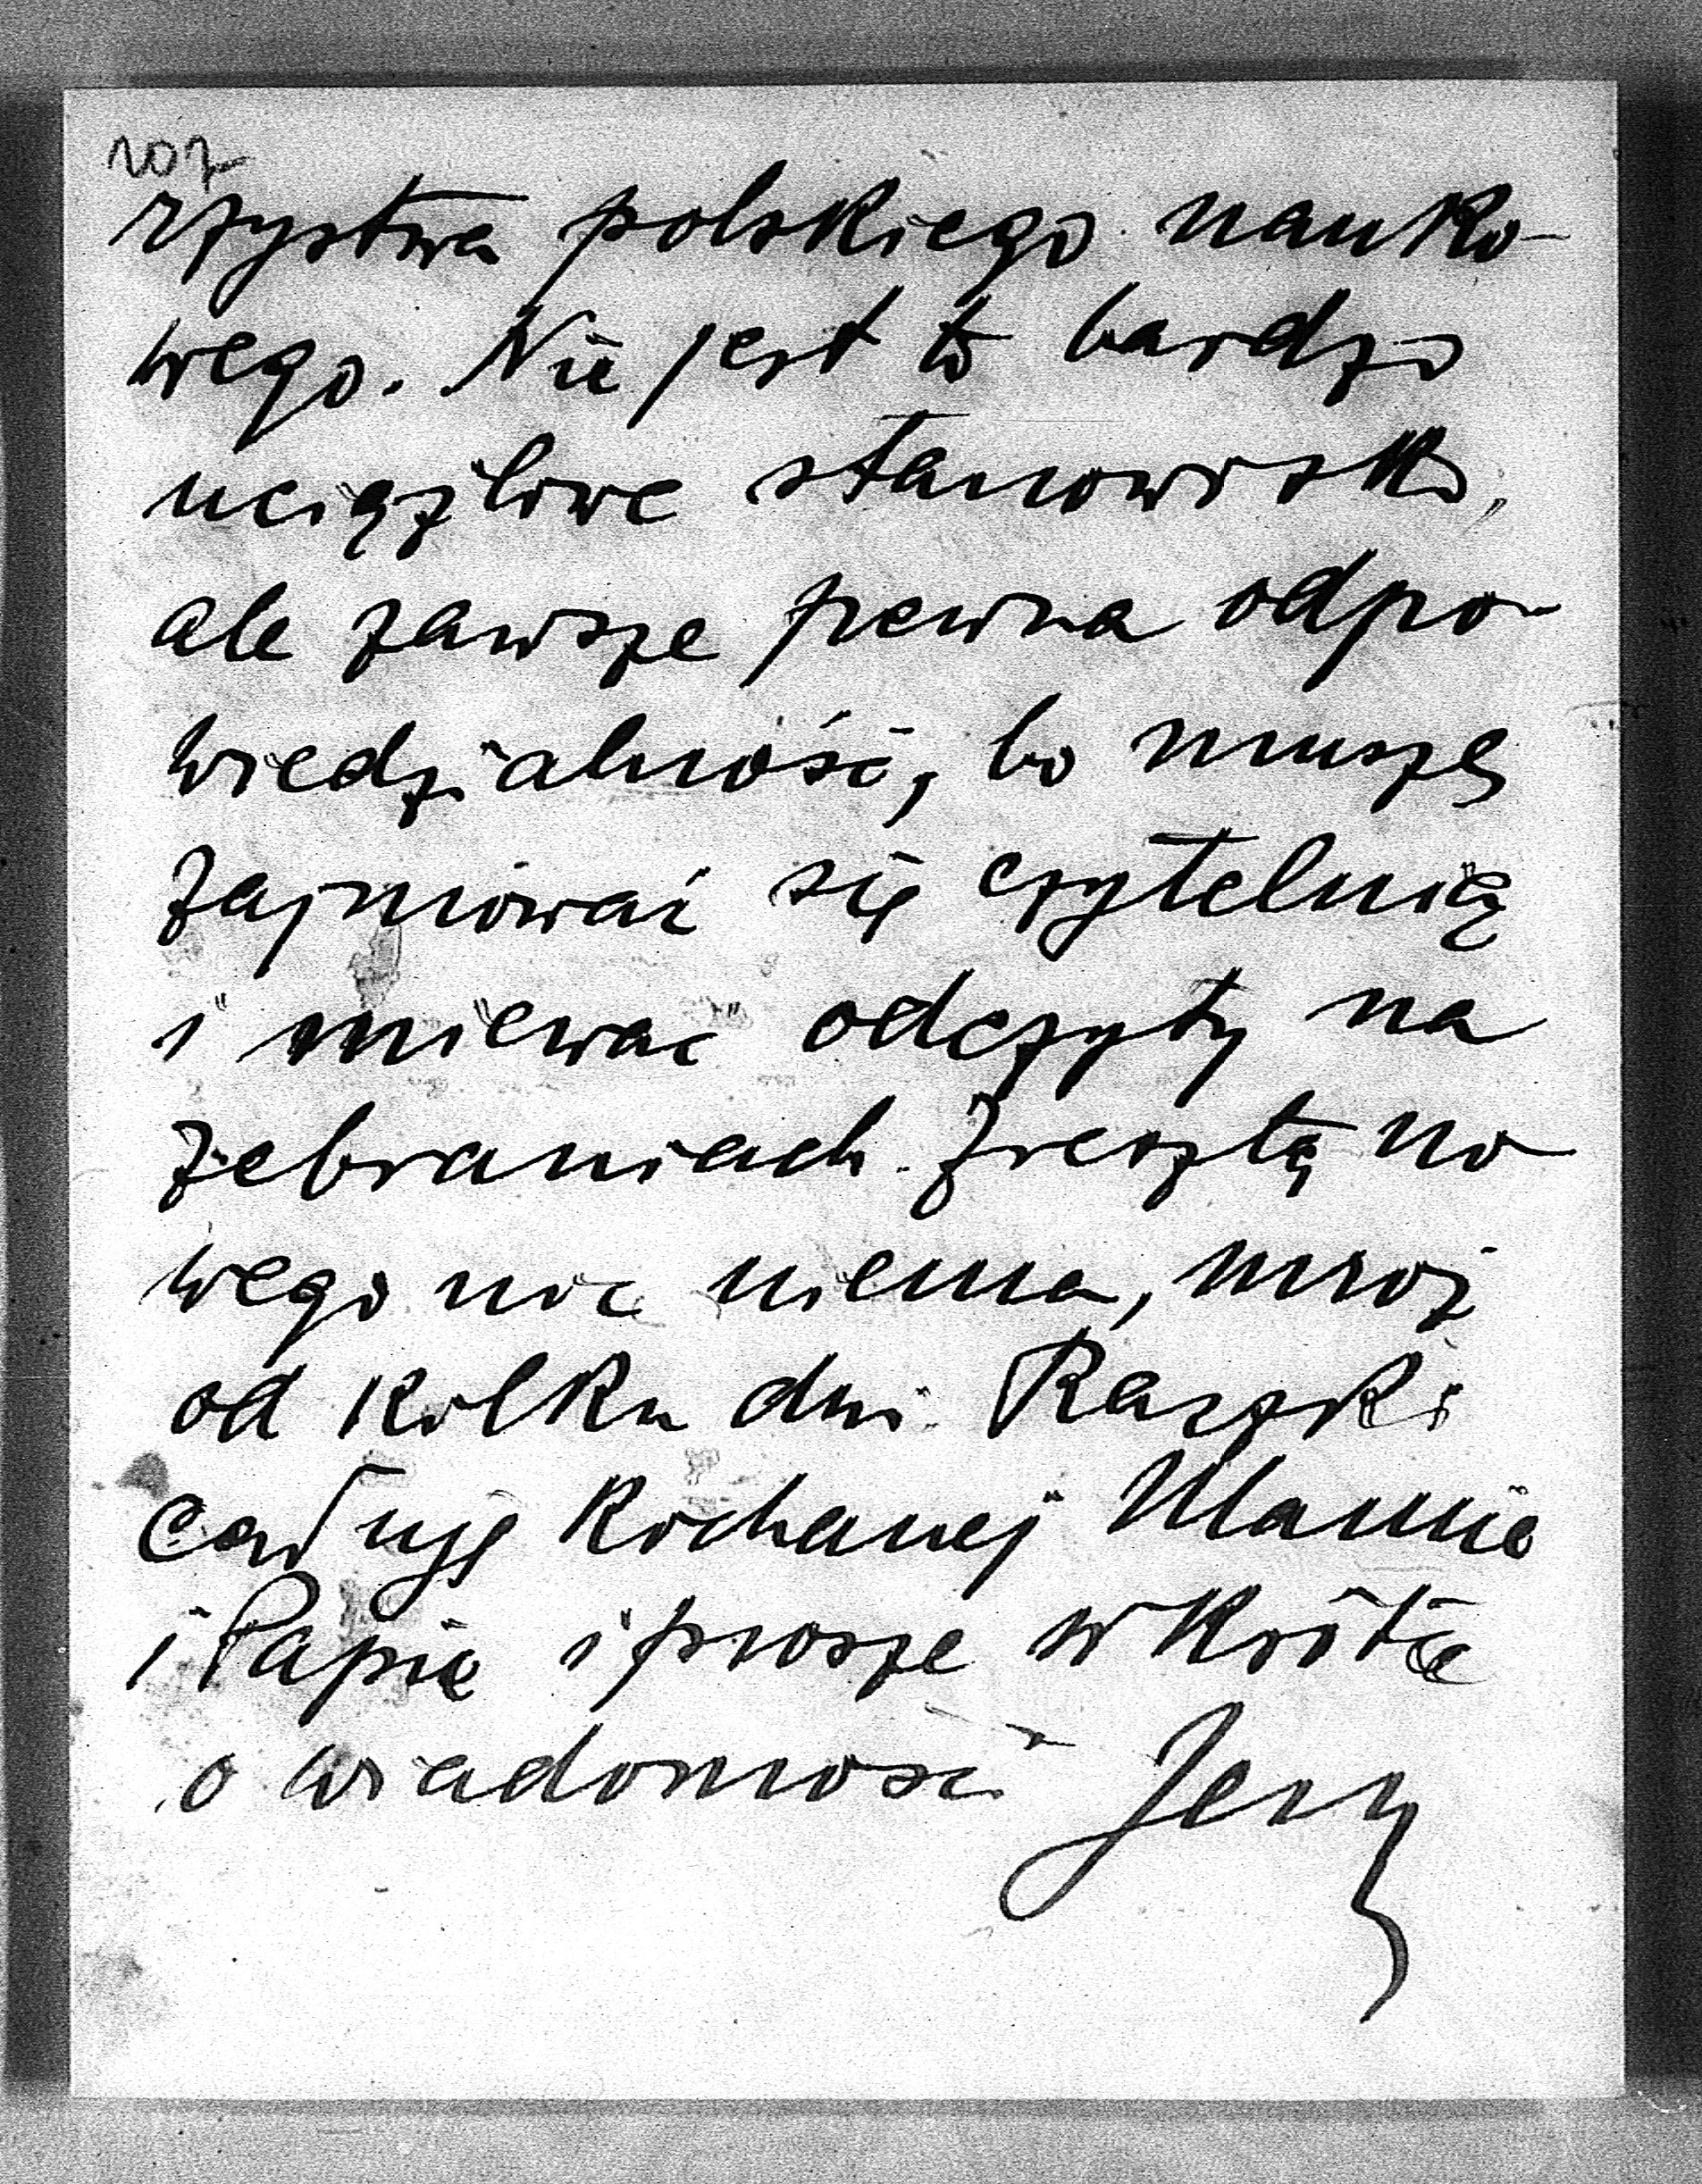 207
rzystwa polskiego nauko-
wego. Nie jest to bardzo
uciążliwe stanowisko,
ale zawsze pewna odpo-
wiedzialność, bo muszę
zajmować się czytelnią
i miewać odczyty na
zebraniach. Zresztą no-
wego nic niema, mroz
od kilku dni. Raczki
całuję kochanej Mamie
i Papie i proszę w krótce
o wiadomość Jerzy